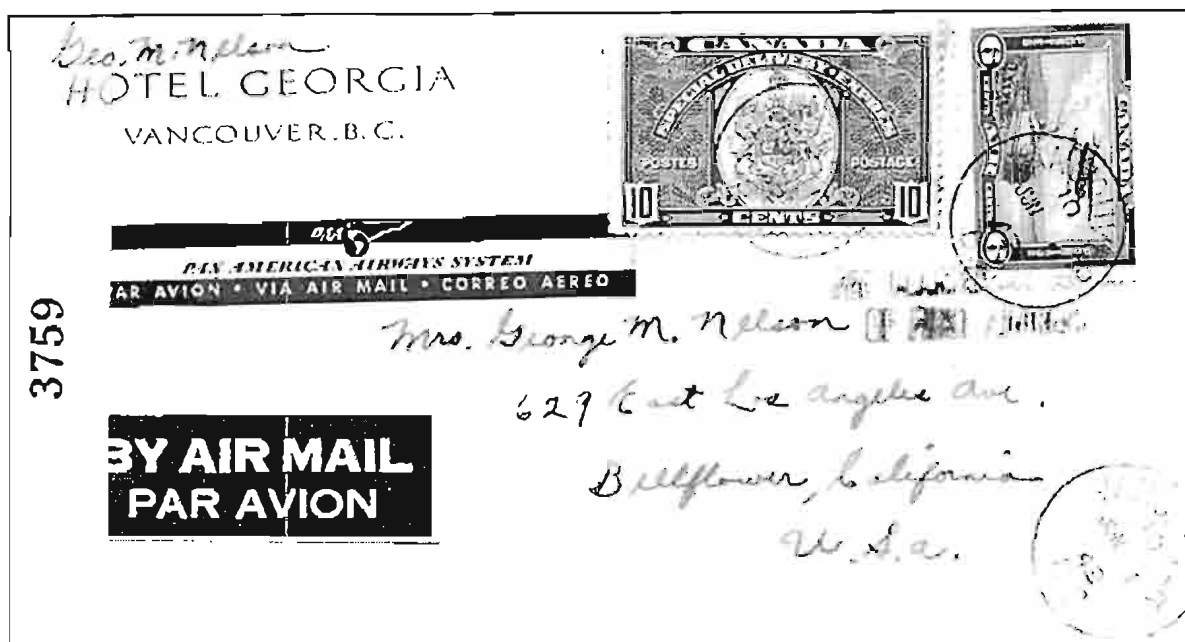 Geo. M. Nelson
HOTEL GEORGIA
VANCOUVER, B.C.
CANADA
SPECIAL DELIVERY EXPRES
POSTES POSTAGE
10 CENTS 10
CANADA
PAA
PAN AMERICAN AIRWAYS SYSTEM
AR AVION • VIA AIR MAIL • CORREO AEREO
3759
Mrs. George M. Nelson
629 East Los Angeles Ave.
Bellflower, California
U.S.A.
BY AIR MAIL
PAR AVION